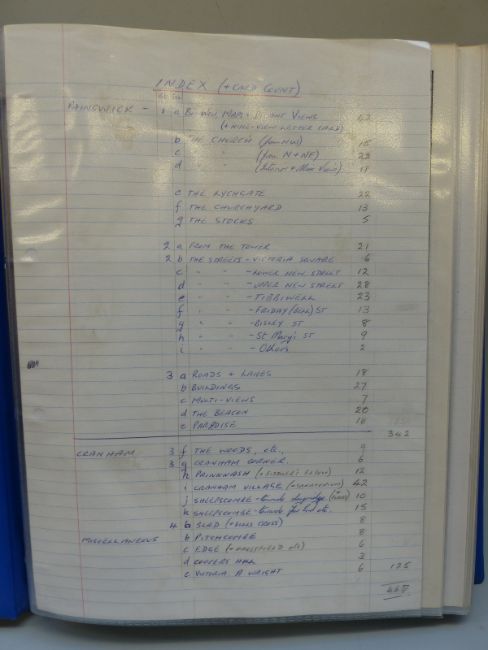 INDEX (+ CARD COUNT)
PAINSWICK - 1 a VIEWS
b THE CHURCH (from NW) 15
c " " (from N + NE) 22
d " " 11
e THE LYCHGATE 22
f THE CHURCHYARD 13
g THE STOCKS 5
2 a FROM THE TOWER 21
2 b THE STREETS - VICTORIA SQUARE 6
c " " - LOWER NEW STREET 12
d " " - UPPER NEW STREET 28
e " " - TIBBIWELL 23
f " " - FRIDAY ST 13
g " " - BISLEY ST 8
h " " - St Mary's ST 9
i " " - Others 2
3 a ROADS + LANES 18
b BUILDINGS 27
c MULTI-VIEWS 7
d THE BEACON 20
e PARADISE 16
342
CRANHAM 3 f THE WOODS, etc, 9
3 g CRANHAM CORNER. 6
h PRINKNASH 12
i CRANHAM VILLAGE (+ SANATORIUM) 42
j SHEEPSCOMBE - towards 10
k SHEEPSCOMBE - towards etc. 15
4 SLAD (+ BULLS CROSS) 8
MISCELLANEOUS b PITCHCOMBE 8
c EDGE 6
d COOPERS HILL 3
e. VICTORIA A WRIGHT 6 125
467